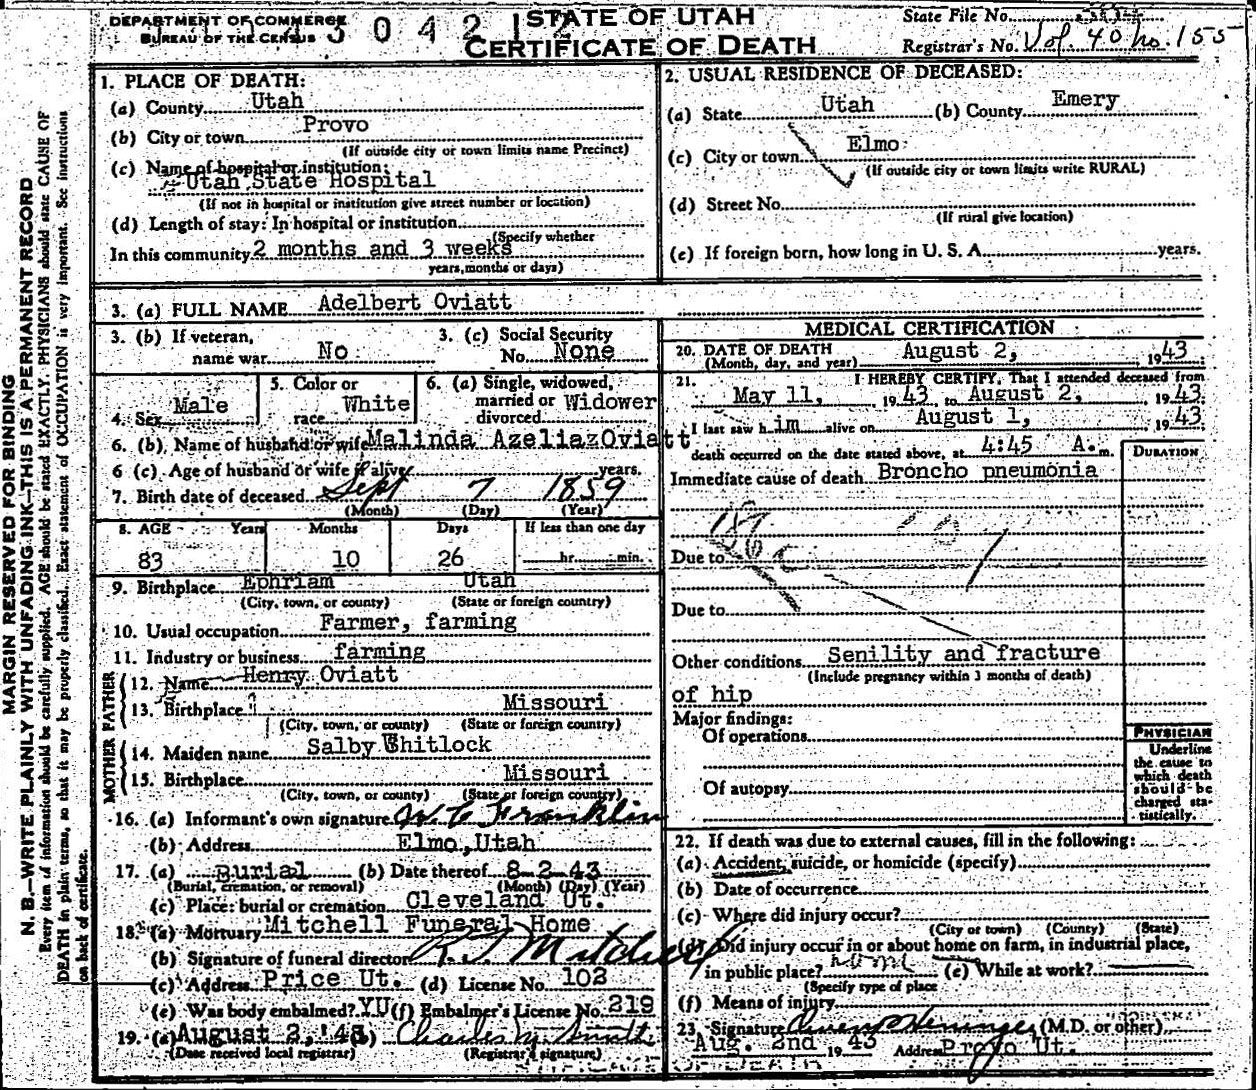 DEPARTMENT OF COMMERCE
BUREAU OF THE CENSUS
3 0 4 2 1 2
STATE OF UTAH
CERTIFICATE OF DEATH
State File No.
Registrar's No. Vol. 40 no. 155
MARGIN RESERVED FOR BINDING
N. B.—WRITE PLAINLY WITH UNFADING INK—THIS IS A PERMANENT RECORD
Every item of information should be carefully supplied. AGE should be stated EXACTLY. PHYSICIANS should state CAUSE OF
DEATH in plain terms, so that it may be properly classified. Exact statement of OCCUPATION is very important. See instructions
on back of certificate.
1. PLACE OF DEATH:
(a) County Utah
(b) City or town Provo
(If outside city or town limits name Precinct)
(c) Name of hospital or institution:
Utah State Hospital
(If not in hospital or institution give street number or location)
(d) Length of stay: In hospital or institution
(Specify whether
In this community 2 months and 3 weeks
years, months or days)
2. USUAL RESIDENCE OF DECEASED:
(a) State Utah (b) County Emery
(c) City or town Elmo
(If outside city or town limits write RURAL)
(d) Street No.
(If rural give location)
(e) If foreign born, how long in U. S. A. years.
3. (a) FULL NAME Adelbert Oviatt
3. (b) If veteran, name war No
3. (c) Social Security No. None
4. Sex Male
5. Color or race White
6. (a) Single, widowed, married or divorced Widower
6. (b) Name of husband or wife Malinda Azeliaz Oviatt
6 (c) Age of husband or wife if alive years.
7. Birth date of deceased Sept 7 1859
(Month) (Day) (Year)
8. AGE Years Months Days If less than one day
83 10 26 hr. min.
9. Birthplace Ephriam Utah
(City, town, or county) (State or foreign country)
10. Usual occupation Farmer, farming
11. Industry or business farming
FATHER
12. Name Henry Oviatt
13. Birthplace Missouri
(City, town, or county) (State or foreign country)
MOTHER
14. Maiden name Salby Whitlock
15. Birthplace Missouri
(City, town, or county) (State or foreign country)
16. (a) Informant's own signature W C Franklin
(b) Address Elmo, Utah
17. (a) Burial (b) Date thereof 8-2-43
(Burial, cremation, or removal) (Month) (Day) (Year)
(c) Place: burial or cremation Cleveland Ut.
18. (a) Mortuary Mitchell Funeral Home
(b) Signature of funeral director R. T. Mitchell
(c) Address Price Ut. (d) License No. 102
(e) Was body embalmed? YU (f) Embalmer's License No. 219
19. (a) August 2, '43 (b) Charles M. Smith
(Date received local registrar) (Registrar's signature)
MEDICAL CERTIFICATION
20. DATE OF DEATH August 2, 1943
(Month, day, and year)
21. I HEREBY CERTIFY, That I attended deceased from
May 11, 1943 to August 2, 1943
I last saw him alive on August 1, 1943
death occurred on the date stated above, at 4:45 A. m.
DURATION
Immediate cause of death Broncho pneumonia
Due to
Due to
Other conditions Senility and fracture
(Include pregnancy within 3 months of death)
of hip
Major findings:
Of operations
Of autopsy
PHYSICIAN
Underline
the cause to
which death
should be
charged sta-
tistically.
22. If death was due to external causes, fill in the following:
(a) Accident, suicide, or homicide (specify)
(b) Date of occurrence
(c) Where did injury occur?
(City or town) (County) (State)
(d) Did injury occur in or about home on farm, in industrial place,
in public place? home (e) While at work?
(Specify type of place
(f) Means of injury
23. Signature Owen P Heninger (M.D. or other)
Aug. 2nd 1943 Address Provo Ut.